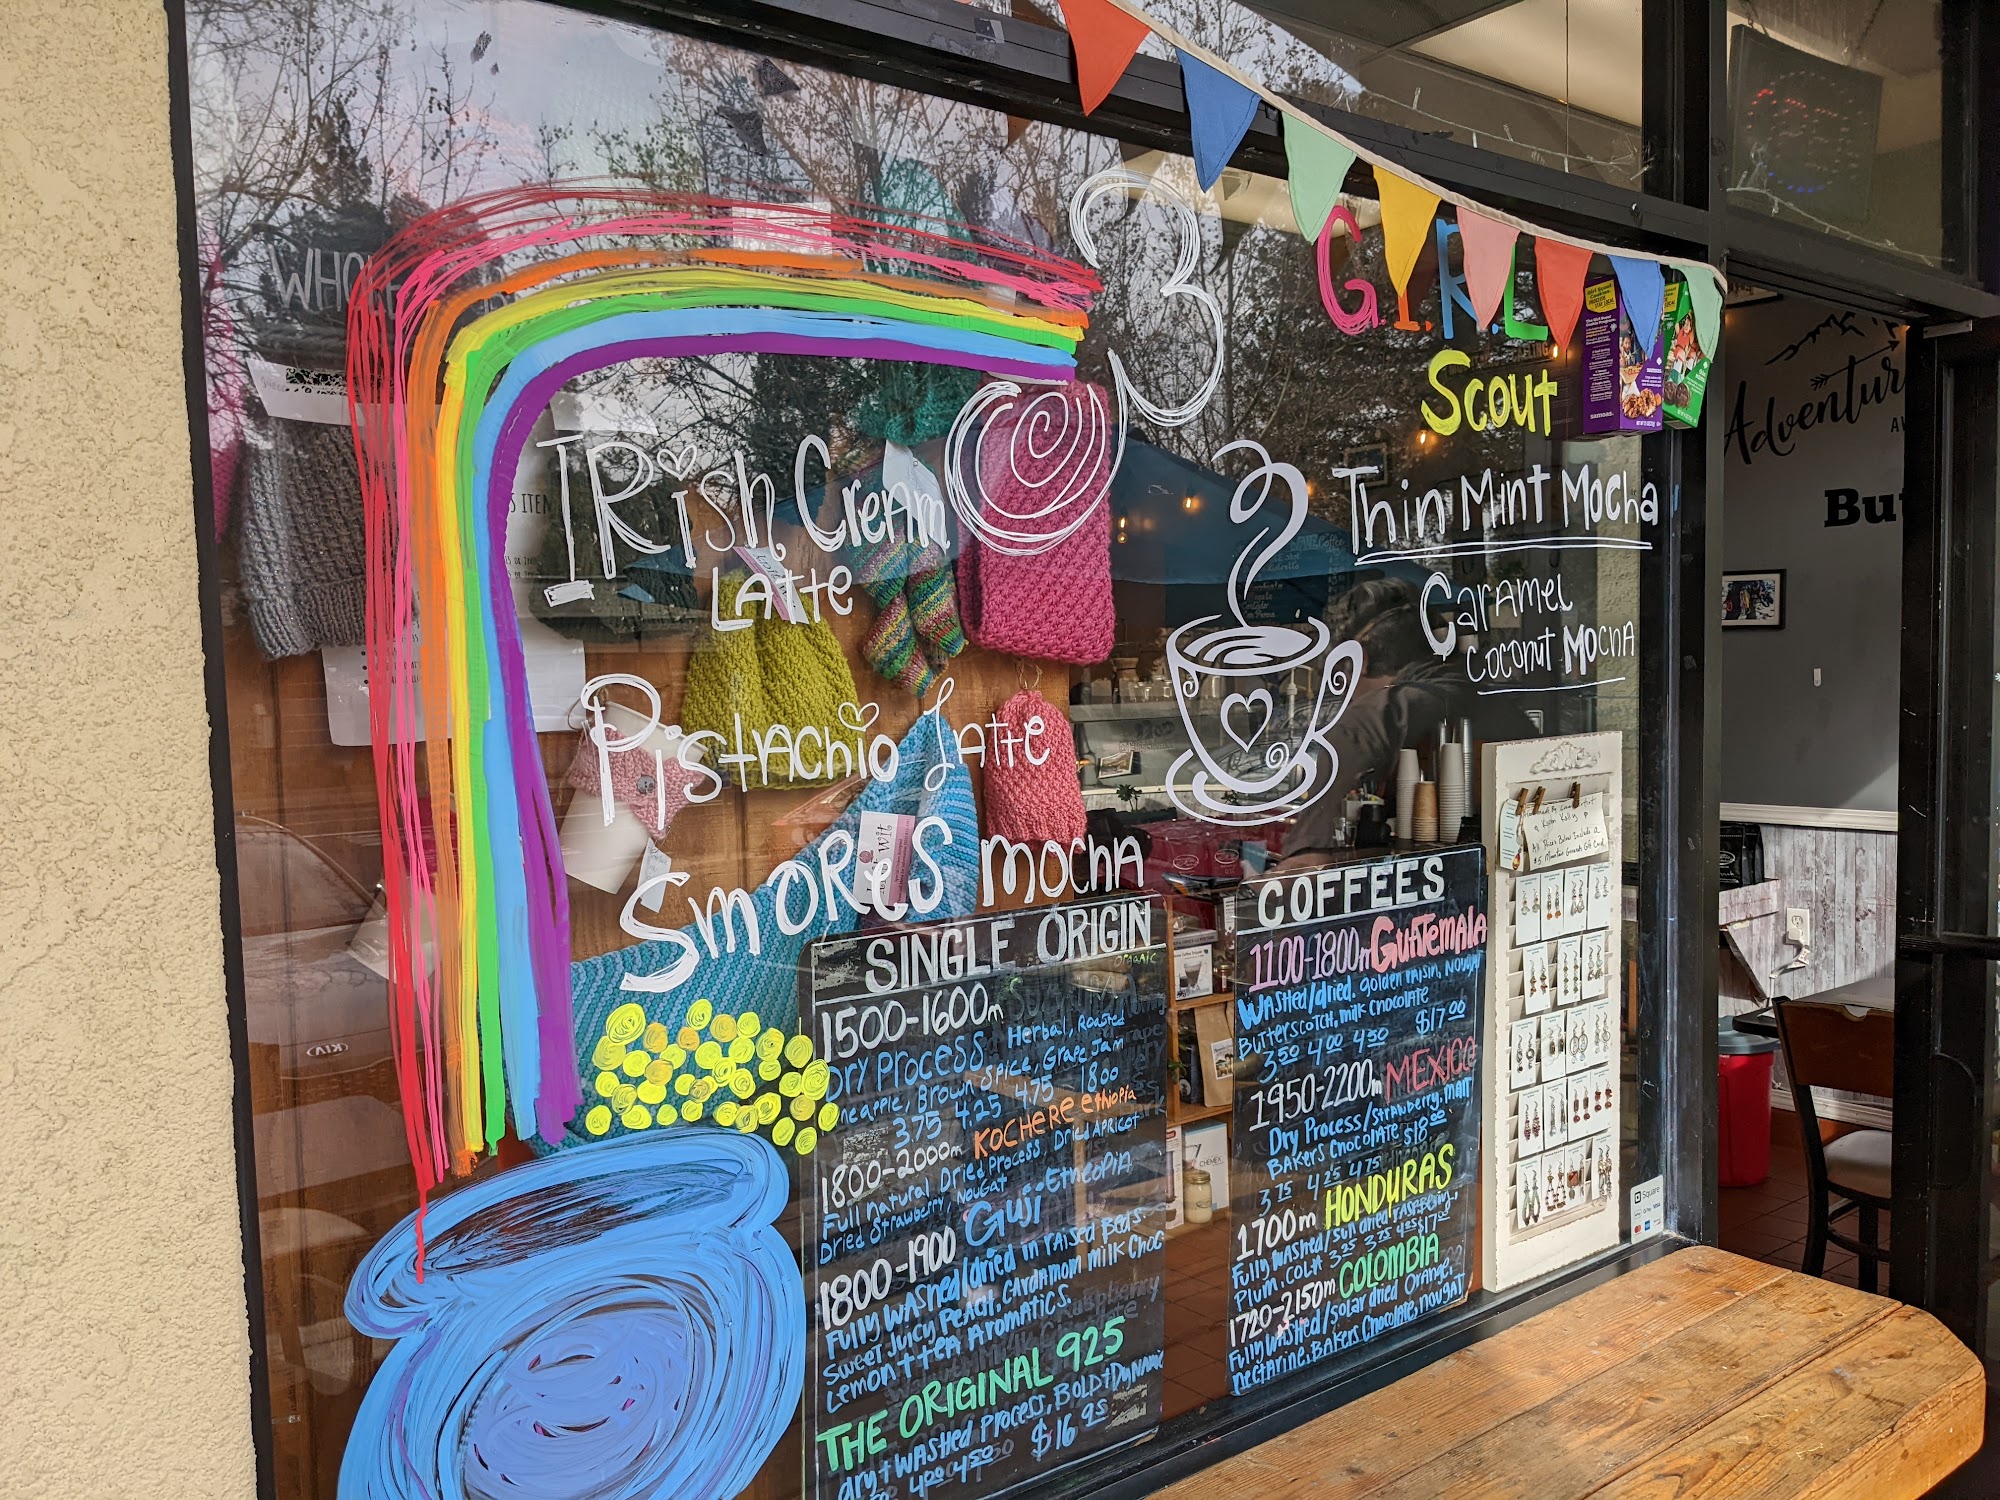 WHOLE
IRish Cream
LATTE
Pistachio Latte
SMORES MOCHA
G.I.R.L
Scout
Thin Mint Mocha
Caramel
Coconut Mocha
Adventur
Bu
samoas
SINGLE ORIGIN
ORGANIC
1500-1600m
Dry Process Herbal, Roasted
Spice, Grape Jam
3.75 4.25 4.75 18.00
1800-2000m KOCHERE ethiopia
Full natural Dried Process. Dried Apricot
Dried Strawberry, Nougat
1800-1900 Guji Etheopia
Fully Washed/dried in raised Beds.
Sweet Juicy Peach, Cardamom Milk Choc
Lemon + Tea Aromatics.
THE ORIGINAL 925
dry + washed Process, Bold + Dynamic
4.00 4.50 $16.95
COFFEES
1100-1800m Guatemala
Washed/dried. golden raisin, nougat
Butterscotch, milk chocolate
3.50 4.00 4.50 $17.00
1950-2200m MEXICO
Dry Process/strawberry, malt
Bakers Chocolate $18.00
3.75 4.25 4.75
1700m HONDURAS
Fully Washed/sun dried raspberry,
Plum, Cola 3.25 3.75 4.25 $17.00
1720-2150m COLOMBIA
Fully Washed/solar dried Orange,
nectarine, Bakers Chocolate, nougat
CHEMEX
KIA
Square